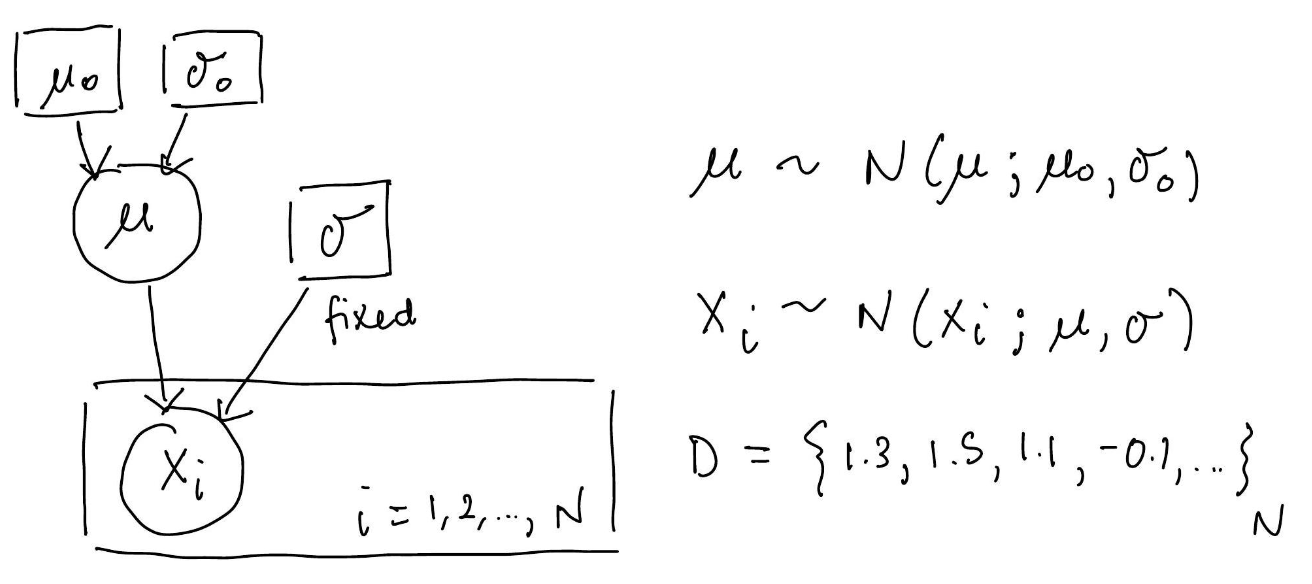 μ₀
σ₀
μ
σ
fixed
Xᵢ
i = 1, 2, ..., N
μ ~ N(μ; μ₀, σ₀)
Xᵢ ~ N(xᵢ; μ, σ)
D = {1.3, 1.5, 1.1, -0.1, ...}
N